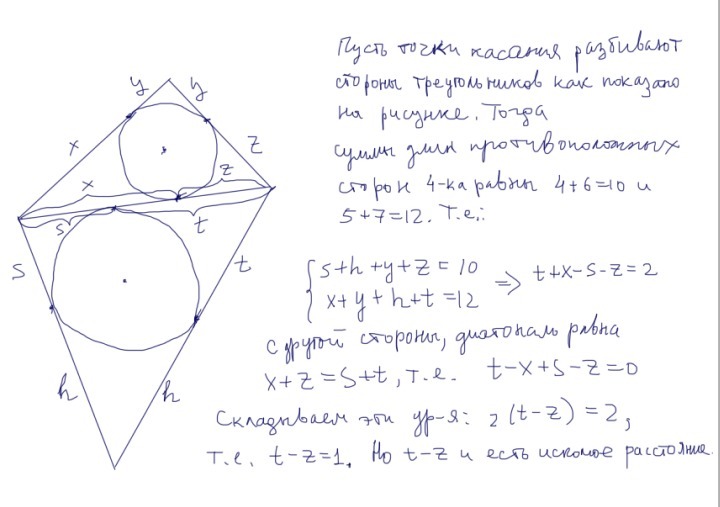 y y
x z
x z
s t
s t
h h
Пусть точки касания разбивают
стороны треугольников как показано
на рисунке. Тогда
суммы длин противоположных
сторон 4-ка равны 4+6=10 и
5+7=12. Т.е.:
s+h+y+z=10
x+y+h+t=12
=> t+x-s-z=2
с другой стороны, диагональ равна
x+z=s+t, т.е. t-x+s-z=0
Складываем эти ур-я: 2(t-z)=2,
т.е. t-z=1. Но t-z и есть искомое расстояние.